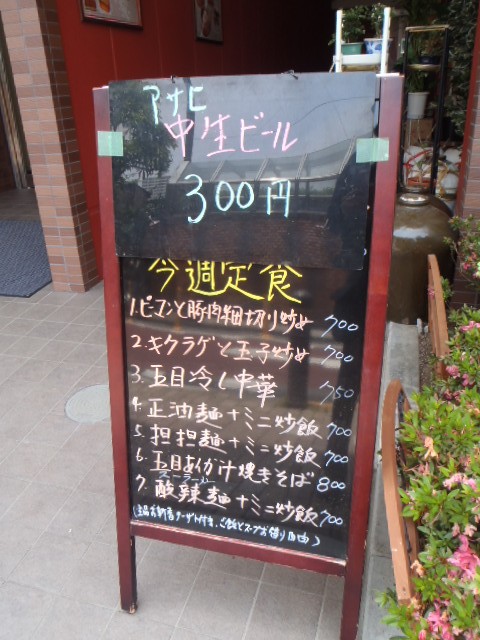 アサヒ
中生ビール
300円
今週定食
1.ピーマンと豚肉細切り炒め 700
2.キクラゲと玉子炒め 700
3.五目冷し中華 750
4.正油麺+ミニ炒飯 700
5.担担麺+ミニ炒飯 700
6.五目あんかけ焼きそば 800
スーラーメン
7.酸辣麺+ミニ炒飯 700
ご飯とスープお替り自由)